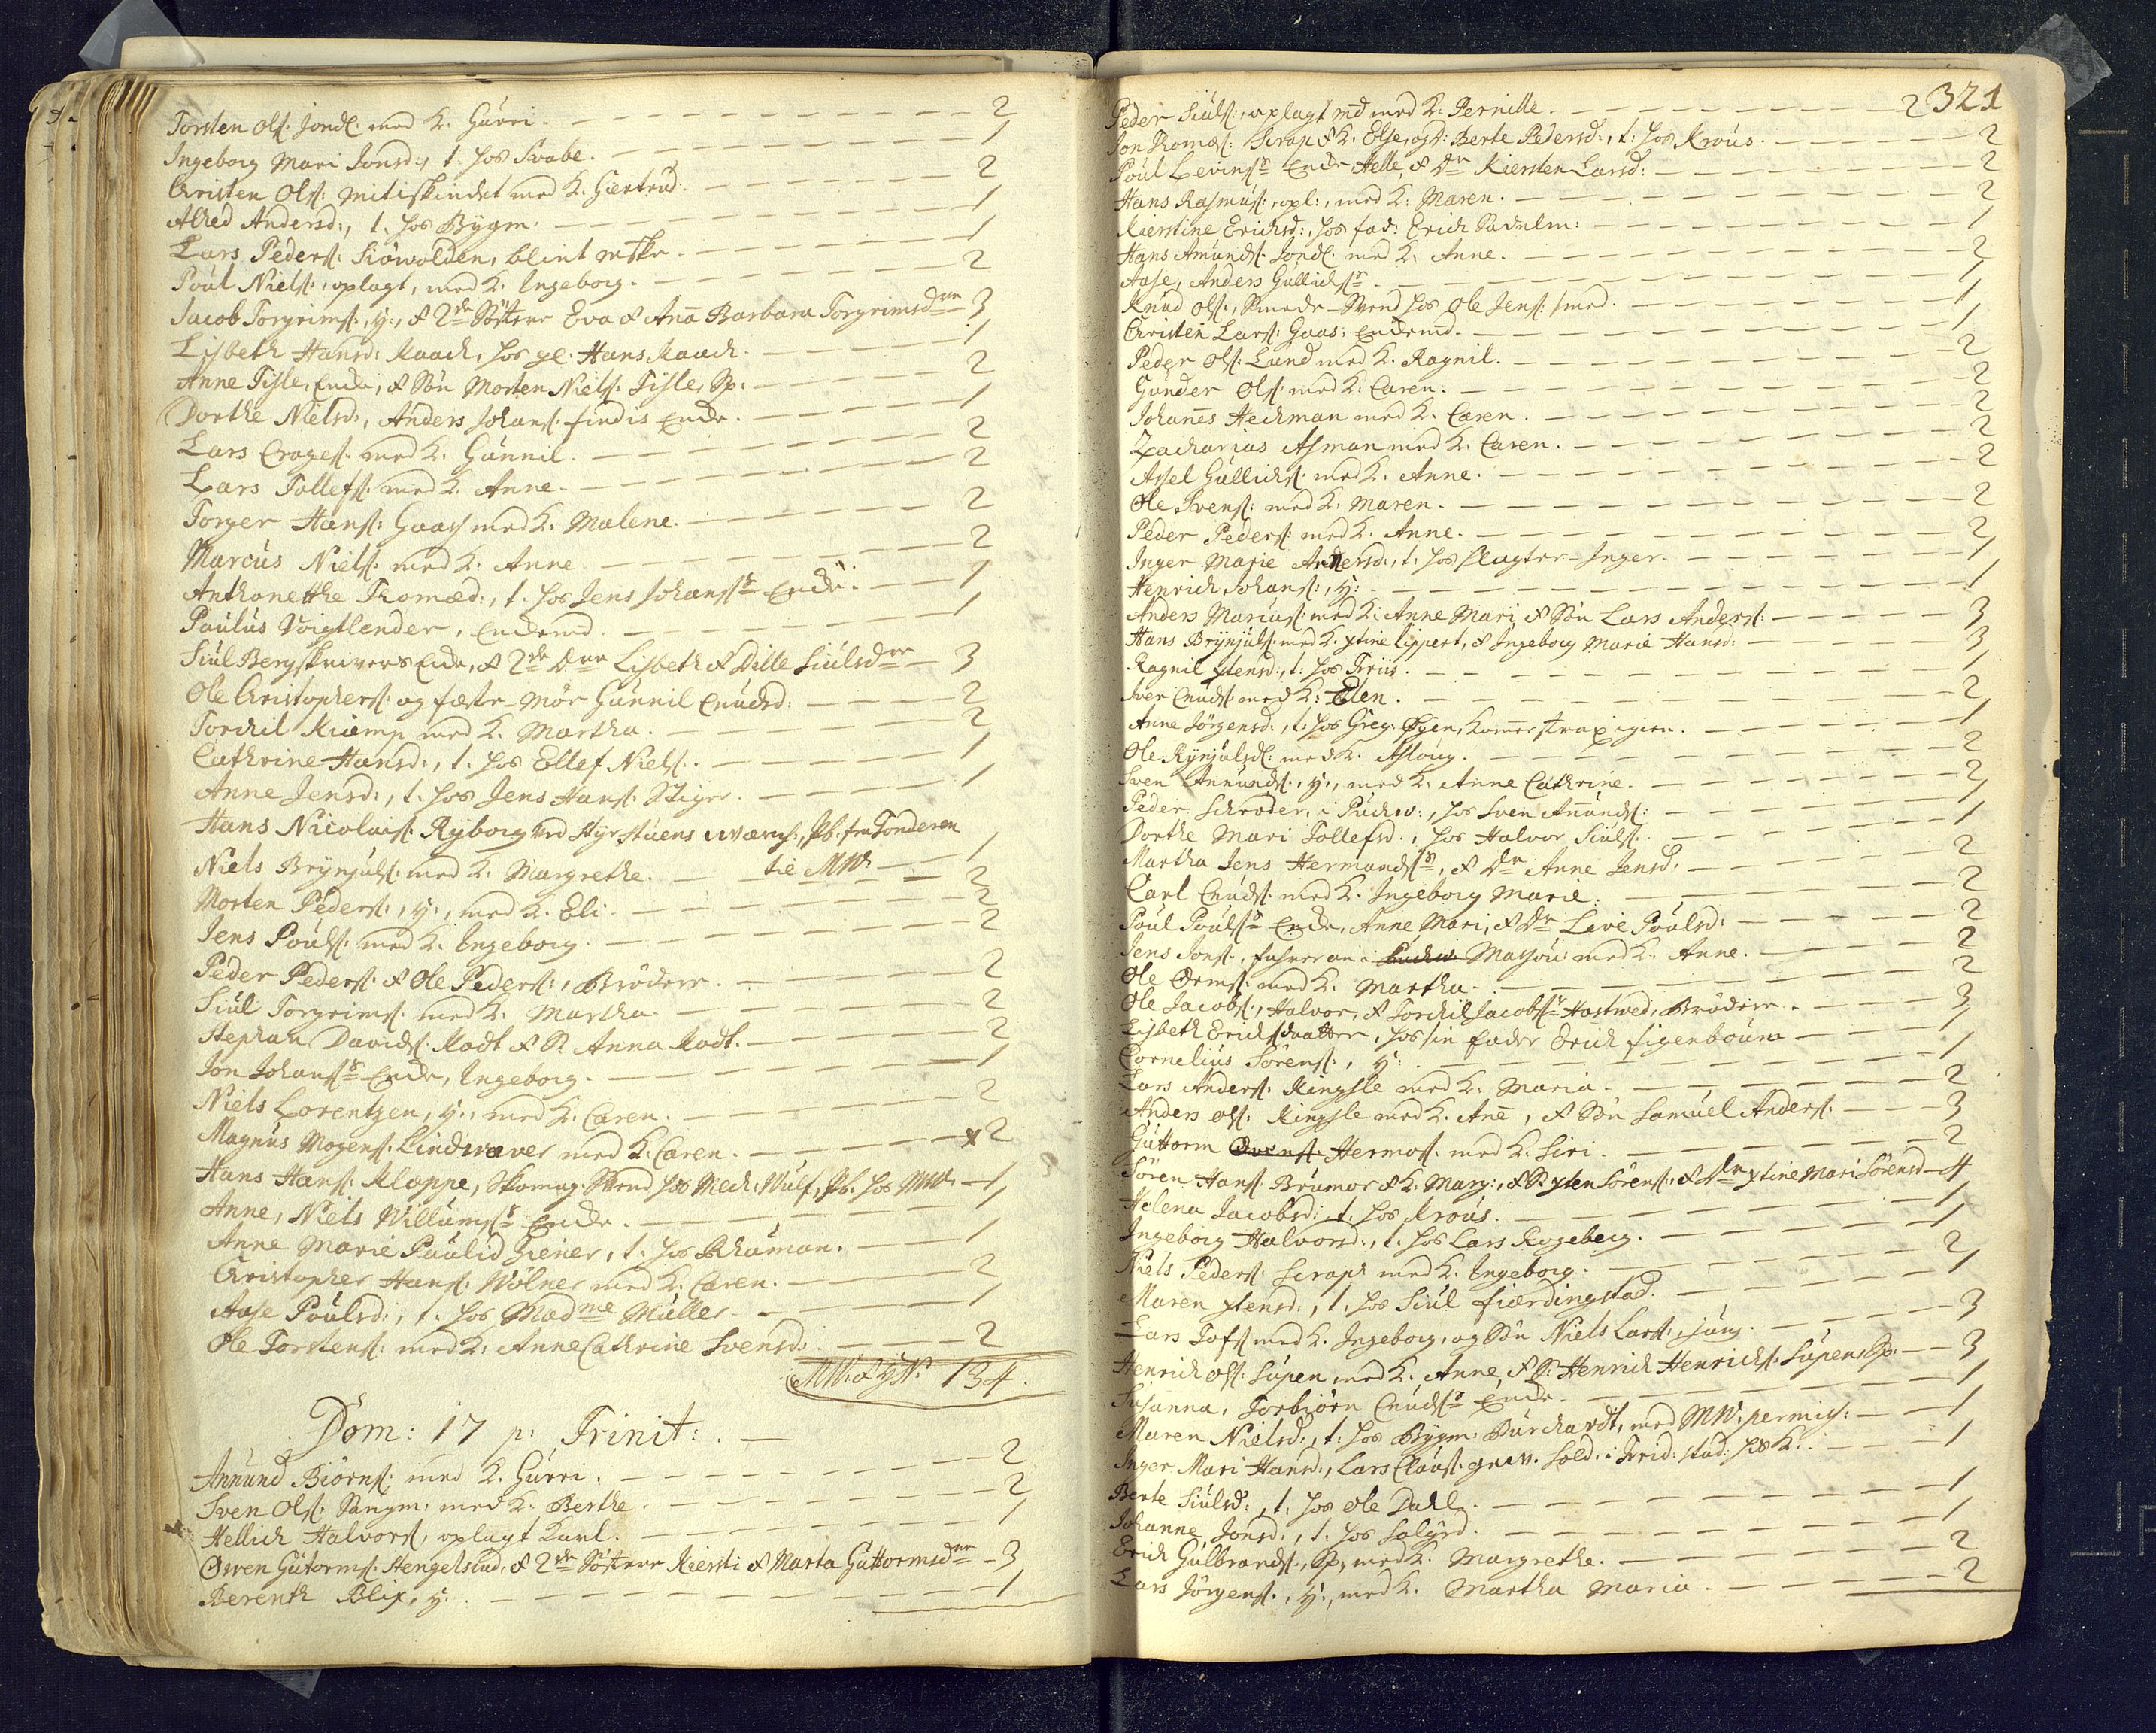 Torsten Ols: Jondl: med K. Gurri. 2
Ingeborg Mari Jonsd:, t. hos Svabe. 1
Christen Ols: Mitiskindet med K. Giertrud. 2
Alhed Andersd:, t. hos Bygm. 1
Lars Peders: Siöwolden, blint mske. 1
Poul Niels: oplagt, med K. Ingeborg. 2
Jacob Torgrims:, y:, & 2de Söstere Eva & Ana Barbara Torgrimsdr 3
Lisbeth Hansd: Raach, hos gl. Hans Raach. 1
Anne Tisle, Enke, & Sön Morten Niels: Tisle, Sp: 2
Dorthe Nielsd:, Anders Johans: findis Enke. 1
Lars Crages: med K. Gunnil. 2
Lars Tollefs: med K. Anne. 2
Torger Hans: Gaas med K. Malene. 2
Marcus Niels: med K. Anne. 2
Anthonethe Thomæd:, t. hos Jens Johanss Enke. 1
Paulus Voigtlender, Enkemd. 1
Siul Bergskrivers Enke, & 2de Dttre Lisbeth & Dille Siulsdr 3
Ole Christophers: og fæste-Mör Gunnil Cnudsd: 2
Torchil Kiemp med K. Martha. 2
Cathrine Hansd:, t. hos Ellef Niels: 1
Anne Jensd:, t. hos Jens Hans: Stiger. 1
Hans Nicolais: Ryborg ved Styrstuens, Pb. fra Tonderen
til MW. 1
Niels Brynjuls: med K. Margrethe. 2
Morten Peders:, y:, med K. Eli. 2
Jens Pouls: med K. Ingeborg. 2
Peder Peders: & Ole Peders:, Brödere. 2
Siul Torgrims: med K. Martha. 2
Stephan Davids: Radt & K Anna Radt. 2
Jon Johanss Enke, Ingeborg. 1
Niels Lorentzen, y:, med K. Caren. 2
Magnus Mogens: Lindwæver med K. Caren. x 2
Hans Hans: Kloppe, Skomag. Svend hos Mech. Wulf, Pb. hos MW. 1
Anne, Niels Willumss Enke. 1
Anne Marie Paulid Giener, t. hos Schuman. 1
Christopher Hans: Wölner med K. Caren. 2
Aase Poulsd:, t. hos Madme Müller 1
Ole Torstens: med K. Anne Cathrine Svensd: 2
MW. & yN: 134.
Dom: 17 p: Trinit:
Annund Biörns: med K. Gurri. 2
Sven Ols: Sangm: med K. Berthe. 2
Hellich Halvors:, oplagt Karl. 1
Owen Gutorms: Hengelslud, & 2de Söstere Kiersti & Marta Guttormsdr 3
Berenth Blix, y: 1
321
Peder Siuls:, oplagt md med K. Pernille. 2
Jon Thomæs: Scrap & K. Else, og D: Berte Pedersd:, t. hos Krous. 2
Poul Levinss Enke Helle, & Dr Kiersten Larsd: 2
Hans Rasmus: opl:, med K. Maren. 2
Kierstine Erichsd:, hos fad: Erich Sadelm: 1
Hans Amunds: Jondl: med K. Anne. 2
Aase, Anders Gullichss 1
Knud Ols:, Smede-Svend hos Ole Jens: smed. 1
Christen Lars: Gaas: Enkemd. 1
Peder Ols: Lund med K. Ragnil. 2
Gunder Ols: med K. Caren. 2
Johanes Heckman med K. Caren. 2
Zacharias Asman med K. Caren. 2
Assel Gullichs: med K. Anne. 2
Ole Svens: med K. Maren. 2
Peder Peders: med K. Anne. 2
Inger Marie Andersd:, t. hos Slagter-Inger. 1
Henrich Johans:, y: 1
Anders Marcus: med K: Anne Mari, & Sön Lars Anders: 3
Hans Brynjuls: med K. xtine Lippert, & Ingeborg Marie Hansd: 3
Ragnil xtensd:, t. hos Friis. 1
Iver Cnuds: med K: Elen. 2
Anne Jörgensd:, t. hos Greg. Ogen, 1
Ole Rynjulsd: med K. Aslaug. 2
Sven Annunds:, y:, med K. Anne Cathrine. 2
Peder Schröder, i Puchw:, hos Sven Anunds: 1
Dorthe Mari Tollefsd:, hos Halvor Siuls: 1
Martha Jens Hermandss, & Dr Anne Jensd: 2
Carl Cnuds: med K. Ingeborg Marie. 2
Poul Poulss Enke, Anne Mari, & Dr Live Poulsd: 2
Jens Jons:, i Masou: med K. Anne. 2
Ole Orms: med K. Martha. 2
Ole Jacobs:, Halvor, & Torchil Jacobss Hastwed, Brödere. 3
Lisbeth Erichsdaatter, hos sin fader Erich figenboum 1
Cornelius Sörens:, y: 1
Lars Anders: Ringsle med K. Maria. 2
Anders Ols: Ringsle med K. Ane, & Sön Samuel Anders: 3
Guttorm Hermos: med K. Siri. 2
Sören Hans: Brumor & K. Marg:, & S. xten Sörens:, & Dr xtine Mari Sörensd 4
Helena Jacobsd:, t. hos Krous. 1
Ingeborg Halvorsd:, t. hos Lars Rogeberg. 1
Niels Peders: Scraph med K. Ingeborg. 2
Maren xtensd:, t. hos Siul fierdingstad. 1
Lars Tofs med K. Ingeborg, og Sön Niels Lars:, jung. 3
Henrich Ols: Supen med K. Anne & S: Henrich Henrichs: Supen, Sp. 3
Susanna, Torbiörn Cnudss Enke. 1
Maren Nielsd:, t. hos Bygm: Burchardt, med MW: permiss: 1
Inger Mari Hansd:, Lars Claus: gew. Sold. i Frid: stad: hos K: 1
Berte Siulsd:, t. hos Ole Dahl. 1
Johanne Jonsd:, t. hos Solyrd. 1
Erich Gulbrands:, Sp, med K. Margrethe. 2
Lars Jörgens:, y:, med K. Martha Maria. 2